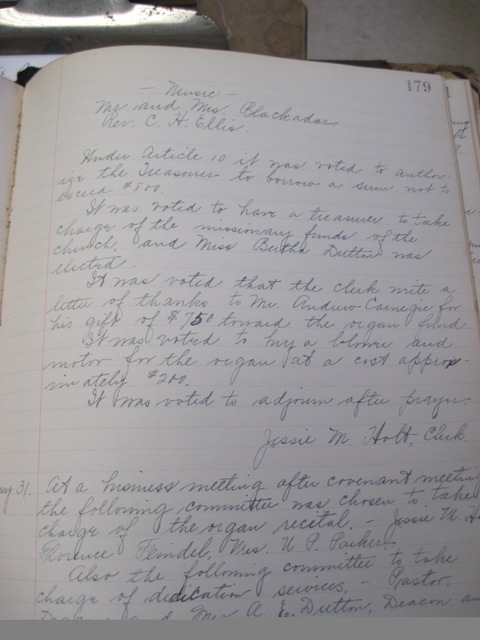 179
- Music -
Mr. and Mrs. Blackadar
Rev. C. H. Ellis.
Under Article 10 it was voted to author-
ize the Treasurer to borrow a sum not to
exceed $800.
It was voted to have a treasurer to take
charge of the missionary funds of the
church, and Miss Bertha Dutton was
elected.
It was voted that the clerk write a
letter of thanks to Mr. Andrew Carnegie for
his gift of $750 toward the organ fund.
It was voted to buy a blower and
motor for the organ at a cost approx-
imately $200.
It was voted to adjourn after prayer.
Jessie M. Holt, Clerk.
ay 31. At a business meeting after covenant meeting
the following committee was chosen to take
charge of the organ recital, - Jessie M. H
Florence Mrs. N. P. Parker.
Also the following committee to take
charge of dedication services, - Pastor,
Deacon and Mrs. A. E. Dutton, Deacon an